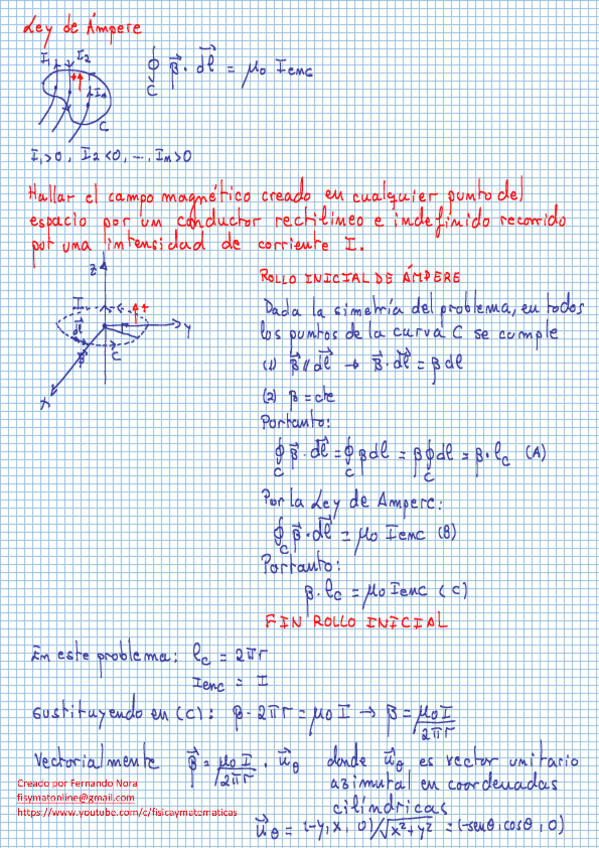 Ley de Ámpere
I₁ I₂
++ Iₙ
C
∮_C B⃗ · dl⃗ = μ₀ Ienc
I₁>0, I₂<0, ..., Iₙ>0
Hallar el campo magnético creado en cualquier punto del
espacio por un conductor rectilíneo e indefinido recorrido
por una intensidad de corriente I.
z
I ++
dl⃗ y
B⃗ C
x
ROLLO INICIAL DE ÁMPERE
Dada la simetría del problema, en todos
los puntos de la curva C se cumple
(1) B⃗ // dl⃗ → B⃗ · dl⃗ = B dl
(2) B = cte
Portanto:
∮_C B⃗ · dl⃗ = ∮_C B dl = B ∮_C dl = B · l_C (A)
Por la Ley de Ampere:
∮_C B⃗ · dl⃗ = μ₀ Ienc (B)
Portanto:
B · l_C = μ₀ Ienc (C)
FIN ROLLO INICIAL
En este problema: l_C = 2πr
Ienc = I
Sustituyendo en (C): B · 2πr = μ₀ I → B = μ₀ I / 2πr
Vectorialmente B⃗ = μ₀ I / 2πr · u⃗_θ donde u⃗_θ es vector unitario
azimutal en coordenadas
cilíndricas
Creado por Fernando Nora
fisymatonline@gmail.com
https://www.youtube.com/c/fisicaymatematicas
u⃗_θ = (-y, x, 0)/√x²+y² = (-senθ, cosθ, 0)